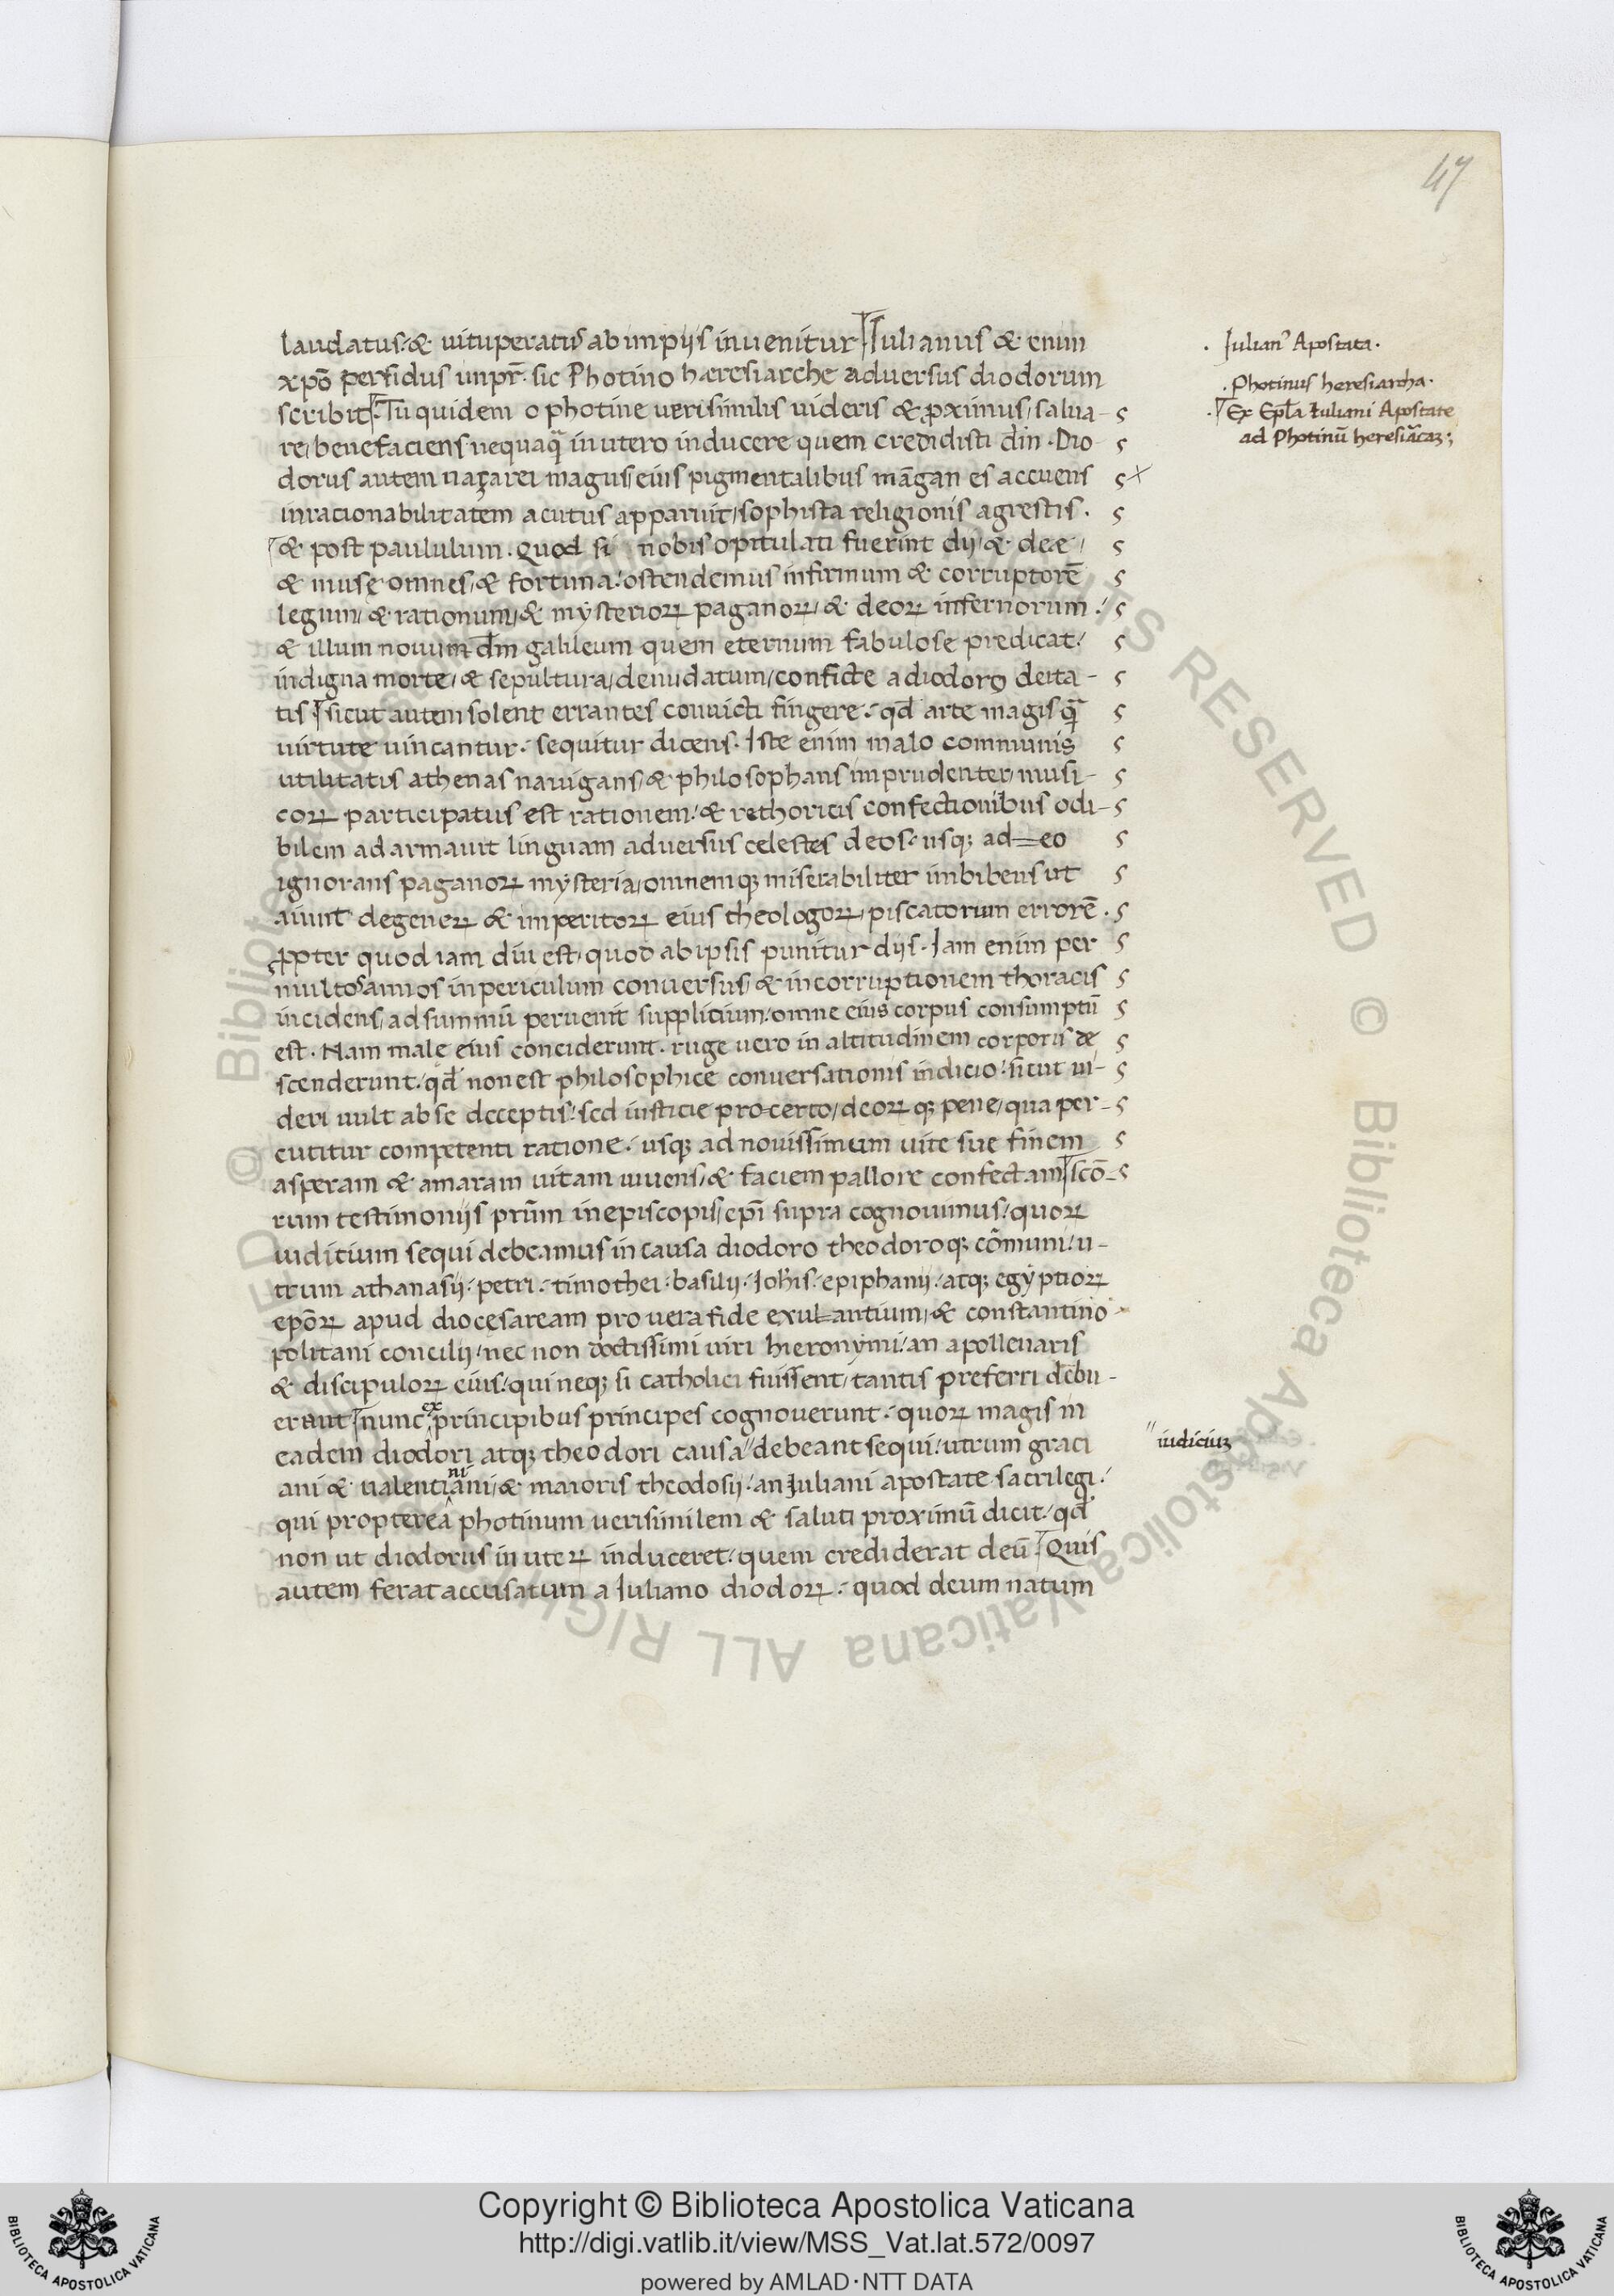 47
laudatus: & uituperatus ab impijs inuenitur Iulianus & enim
xpō perfidus impr̄. sic Photino hæresiarche aduersus diodorum
scribit. Tu quidem o photine uerisimilis uideris & ꝓximus, salua-
re, benefaciens nequaq̄ in utero inducere quem credidisti dīn. Dio-
dorus autem naçarei magus, eius pigmentalibus māgan es accuens
inrationabilitatem acutus apparuit, sophista religionis agrestis.
& post paululum. Quod si nobis opitulati fuerint dij, & deæ,
& musę omnes, & fortuna: ostendemus infirmum & corruptorē
legum, & rationum, & mẏsterioꝝ paganoꝝ, & deoꝝ infernorum:
& illum nouum dm̄ galileum quem eternum fabulose predicat:
indigna morte, & sepultura, denudatum, conficte a diodoro deita-
tis sicut autem solent errantes conuicti fingere: qd̄ arte magis q̄
uirtute uincantur: sequitur dicens. Iste enim malo communis
utilitatis athenas nauigans, & philosophans imprudenter, musi-
coꝝ participatus est rationem: & rethoricis confectionibus odi-
bilem adarmauit linguam aduersus celestes deos: usq; ad=eo
ignorans paganoꝝ mẏsteria, omnem q; miserabiliter imbibens ut
aiunt degeneꝝ & imperitoꝝ eius theologoꝝ, piscatorum errorē.
ꝓpter quod iam diu est, quod ab ipsis punitur dijs. Iam enim per
multos annos in periculum conuersus, & in corruptionem thoracis
incidens, ad summū peruenit supplicium: omne eius corpus consumptū
est. Nam male eius conciderunt. rugę uero in altitudinem corporis de
scenderunt: qd̄ non est philosophicę conuersationis indicio: sicut ui-
deri uult ab se deceptis: sed iusticie pro=certo, deoꝝ q; pene, qua per-
cutitur competenti ratione: usq; ad nouissimum uite sue finem
asperam & amaram uitam uiuens, & faciem pallore confectam scō-
rum testimonijs prūm in episcopis, epī supra cognouimus: quoꝝ
iudicium sequi debeamus in causa diodoro theodoro q; cōmuni: u-
trum athanasij. petri. timothei. basilij. Iohīs. epiphanij: atq; egẏptioꝝ
epōꝝ apud diocesaream pro uera fide exul=antium, & constantino
politani concilij: nec non doctissimi uiri hieronẏmi: an apollenaris
& discipuloꝝ eius: qui neq; si catholici fuissent, tantis preferri debu-
erant nunc ex principibus principes cognouerunt: quoꝝ magis in
eadem diodori atq; theodori causa " debeant sequi: utrum grati
ani & ualentiniani, & maioris theodosij: an Iuliani apostate sacrilegi:
qui propterea photinum uerisimilem & saluti proximū dicit: qd̄
non ut diodorus in uteꝝ induceret: quem crediderat deū Quis
autem ferat accusatum a Iuliano diodoꝝ: quod deum natum
. Iulian⁹ Apostata.
. Photinus heresiarcha.
. Ex Epl̄a Iuliani Apostate
ad Photinū heresiācaꝫ;
" iudiciuꝫ
Copyright © Biblioteca Apostolica Vaticana
http://digi.vatlib.it/view/MSS_Vat.lat.572/0097
powered by AMLAD·NTT DATA
BIBLIOTECA APOSTOLICA VATICANA
BIBLIOTECA APOSTOLICA VATICANA